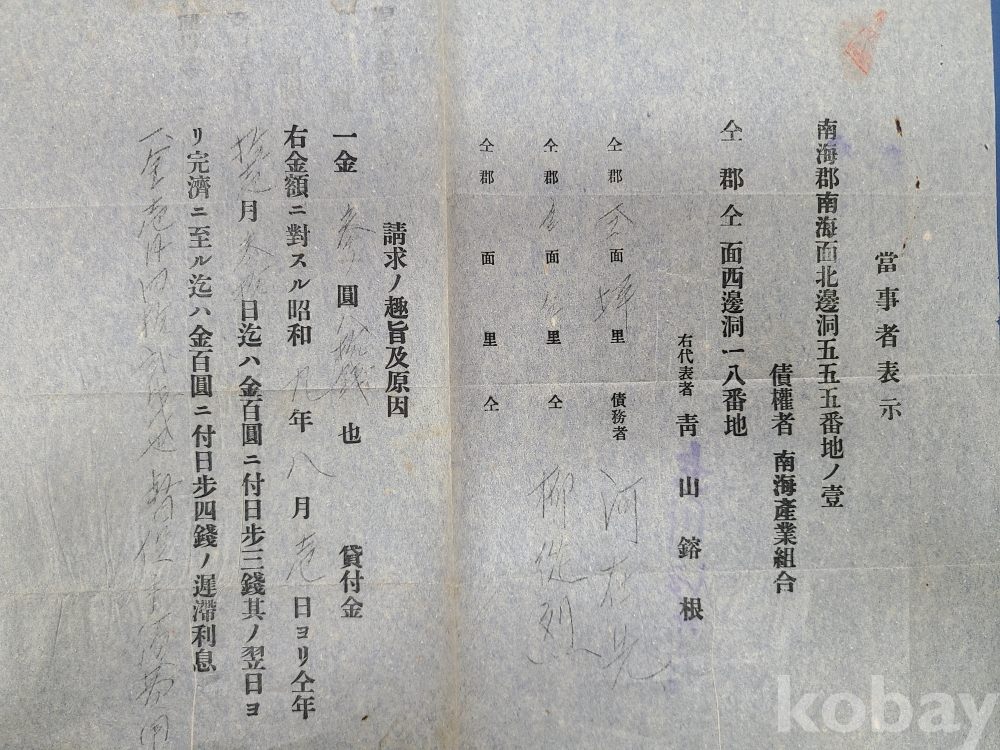 當事者表示
南海郡南海面北邊洞五五五番地ノ壹
債權者 南海產業組合
仝郡仝面西邊洞一八番地
右代表者 靑山鎔根
仝郡 仝面 坪里 債務者 河
仝郡 面 里 仝 柳
仝郡 面 里 仝
請求ノ趣旨及原因
一金 參圓八拾錢也 貸付金
右金額ニ對スル昭和九年八月壱日ヨリ仝年
月 日迄ハ金百圓ニ付日步三錢其ノ翌日ヨ
リ完濟ニ至ル迄ハ金百圓ニ付日步四錢ノ遲滯利息
一金壱円四拾 也 督促手 費用
kobay